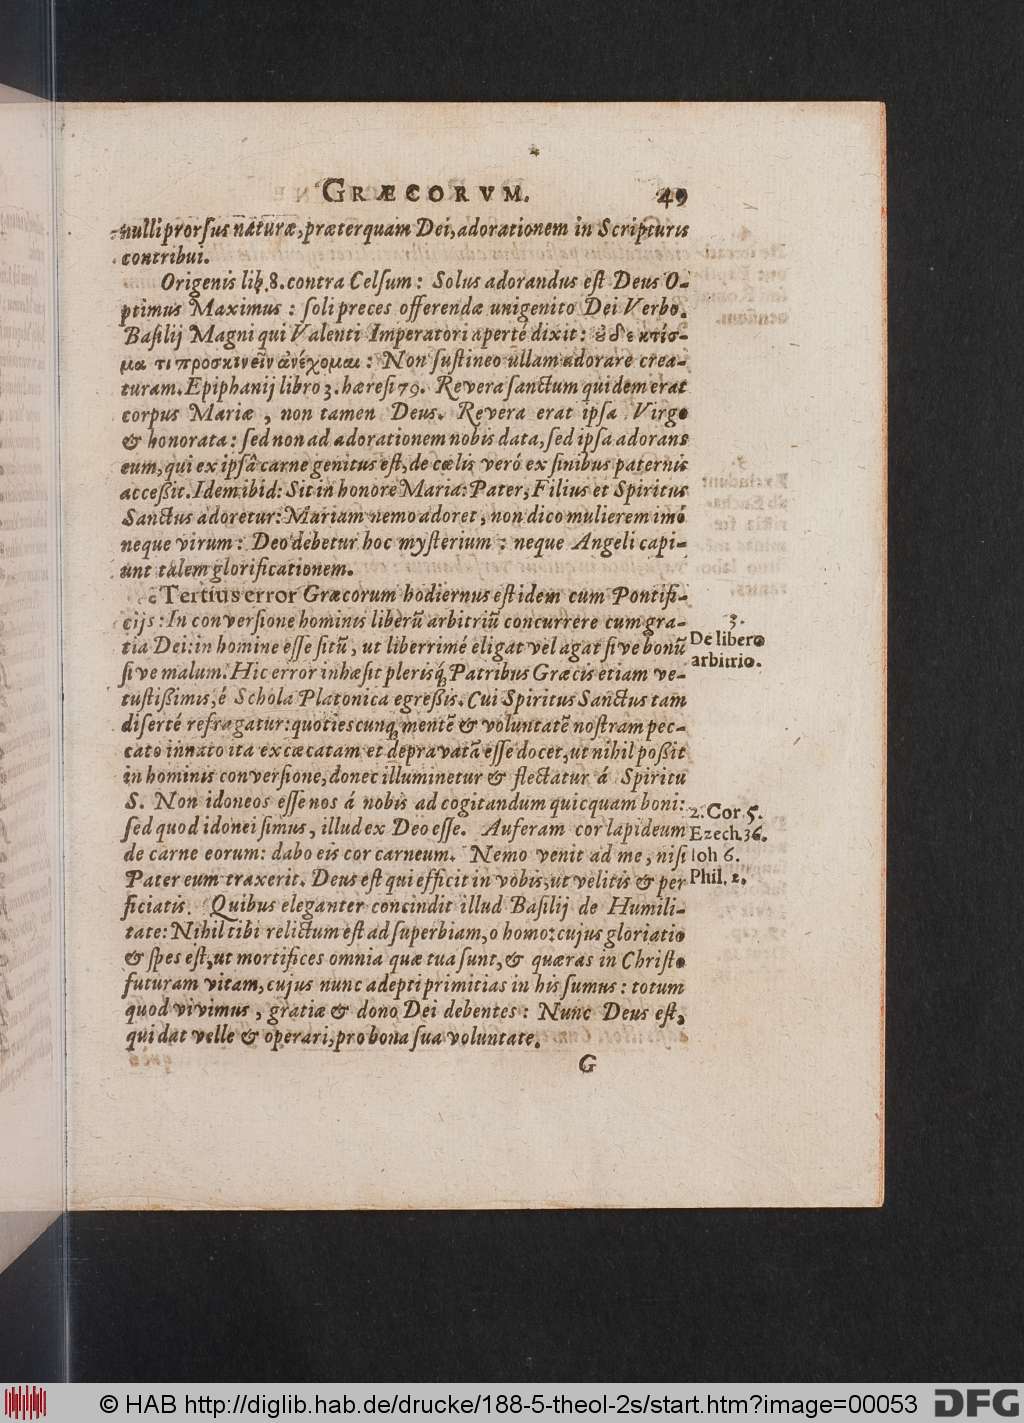 GRÆCORVM. 49
nulli prorsus naturæ, præterquam Dei, adorationem in Scripturis
contribui.
Origenis lib. 8. contra Celsum: Solus adorandus est Deus O-
ptimus Maximus: soli preces offerendæ unigenito Dei Verbo.
Basilij Magni qui Valenti Imperatori aperté dixit: ȣδε κτίσ-
μα τι προσκινεῖν ἀνέχομαι: Non sustineo ullam adorare crea-
turam. Epiphanij libro 3. hæresi 79. Revera sanctum quidem erat
corpus Mariæ, non tamen Deus. Revera erat ipsa Virgo
& honorata: sed non ad adorationem nobis data, sed ipsa adorans
eum, qui ex ipsâ carne genitus est, de cœlis veró ex sinibus paternis
acceßit. Idem ibid: Sit in honore Maria: Pater, Filius et Spiritus
Sanctus adoretur: Mariam nemo adoret, non dico mulierem imó
neque virum: Deo debetur hoc mysterium: neque Angeli capi-
unt talem glorificationem.
Tertius error Græcorum hodiernus est idem cum Pontifi-
cijs: In conversione hominis liberũ arbitriũ concurrere cum gra-
tia Dei: in homine esse sitũ, ut liberrimé eligat vel agat sive bonũ
sive malum. Hic error inhæsit plerisq́; Patribus Græcis etiam ve-
tustißimis, é Schola Platonica egreßis. Cui Spiritus Sanctus tam
diserté refragatur: quotiescunq; mentẽ & voluntatẽ nostram pec-
cato innato ita excæcatam et depravatã esse docet, ut nihil poßit
in hominis conversione, donec illuminetur & flectatur á Spiritu
S. Non idoneos esse nos á nobis ad cogitandum quicquam boni:
sed quod idonei simus, illud ex Deo esse. Auferam cor lapideum
de carne eorum: dabo eis cor carneum. Nemo venit ad me, nisi
Pater eum traxerit. Deus est qui efficit in vobis, ut velitis & per
ficiatis. Quibus eleganter concindit illud Basilij de Humili-
tate: Nihil tibi relictum est ad superbiam, o homo: cujus gloriatio
& spes est, ut mortifices omnia quæ tua sunt, & quæras in Christo
futuram vitam, cujus nunc adepti primitias in his sumus: totum
quod vivimus, gratiæ & dono Dei debentes: Nunc Deus est,
qui dat velle & operari, pro bona sua voluntate.
G
3.
De libero
arbitrio.
2. Cor. 5.
Ezech. 36.
Ioh 6.
Phil. 2.
© HAB http://diglib.hab.de/drucke/188-5-theol-2s/start.htm?image=00053
DFG